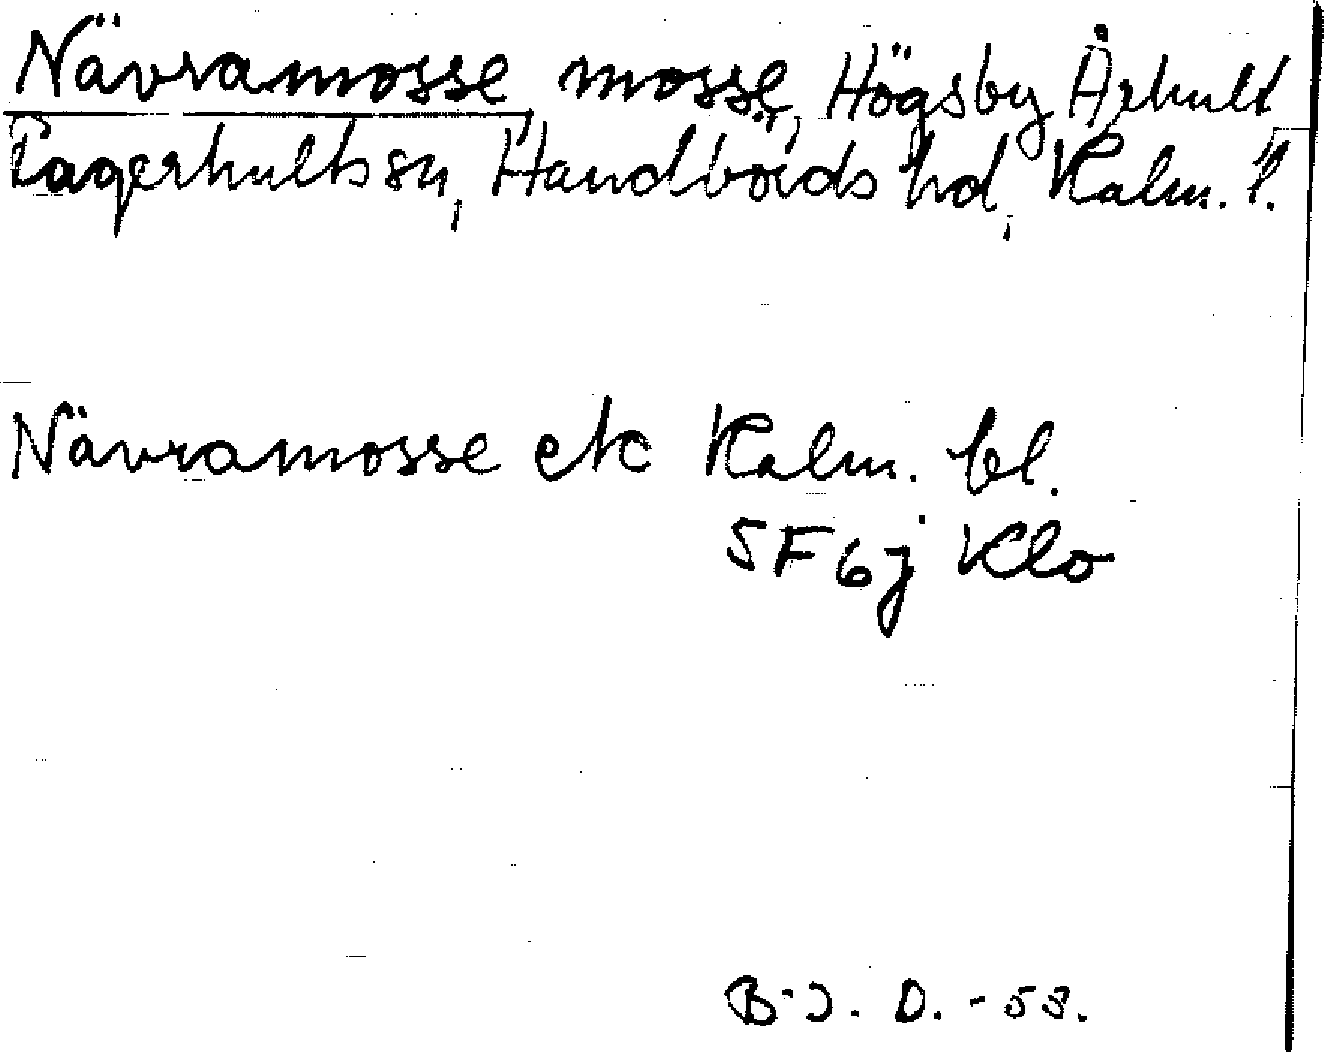 Nävramosse, mosse, Högsby Århult
Fagerhults sn, Handbörds hd, Kalm. l.
Nävramosse etc Kalm. bl.
5F6j Klo
B-J. D. -53.